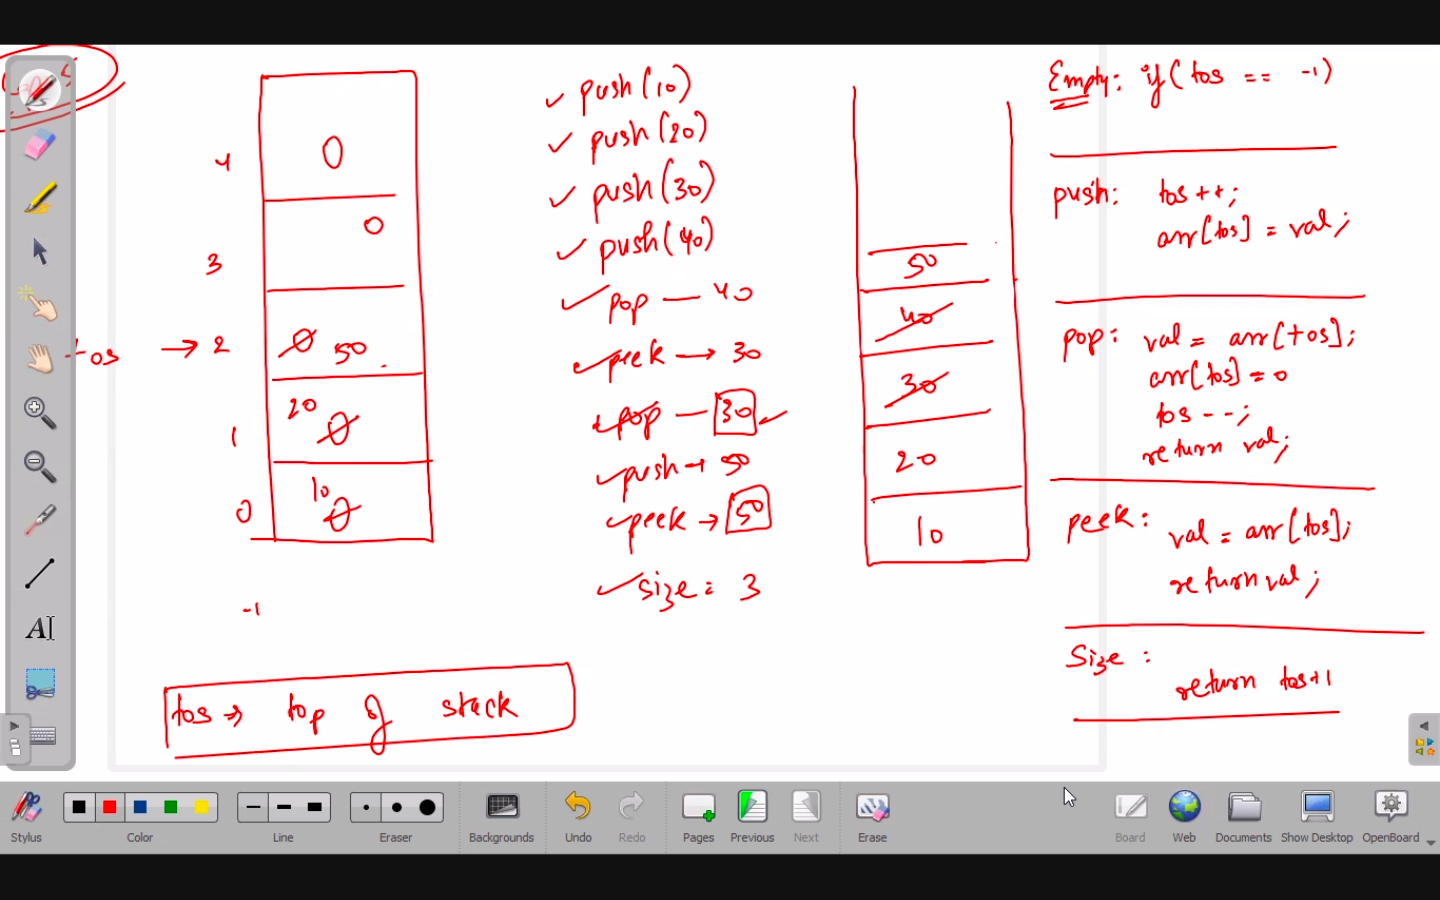 4 0
3 0
tos → 2 0 50
1 20 0
0 10 0
-1
tos → top of stack
push(10)
push(20)
push(30)
push(40)
pop — 40
peek → 30
pop — 30
push → 50
peek → 50
size = 3
50
40
30
20
10
Empty: if(tos == -1)
push: tos++;
arr[tos] = val;
pop: val = arr[tos];
arr[tos] = 0
tos--;
return val;
peek: val = arr[tos];
return val;
Size:
return tos+1
Stylus
Color
Line
Eraser
Backgrounds
Undo
Redo
Pages
Previous
Next
Erase
Board
Web
Documents
Show Desktop
OpenBoard